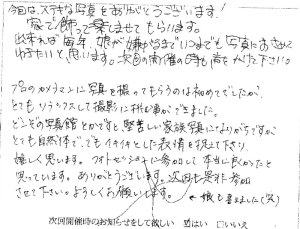 今回は、ステキな写真をありがとうございます!
家で飾って楽しませてもらいます。
出来れば毎年、娘が嫌がるまでいつまでも写真におさめて
いきたいと思います。次回の開催の時も声をかけて下さい。
プロのカメラマンに写真を撮ってもらうのは初めてでしたが、
とてもリラックスして撮影に挑む事ができました。
どこぞの写真館とかですと、堅苦しい家族写真になりがちですが、
とても自然体で、でもイキイキとした表情を捉えて下さり、
嬉しく思います。フォトセッションに参加して本当に良かったと
思っています。ありがとうございます。次回も是非参加
させて下さい。よろしくお願いします。
娘も喜びました(笑)
次回開催時のお知らせをして欲しい ☑はい □いいえ